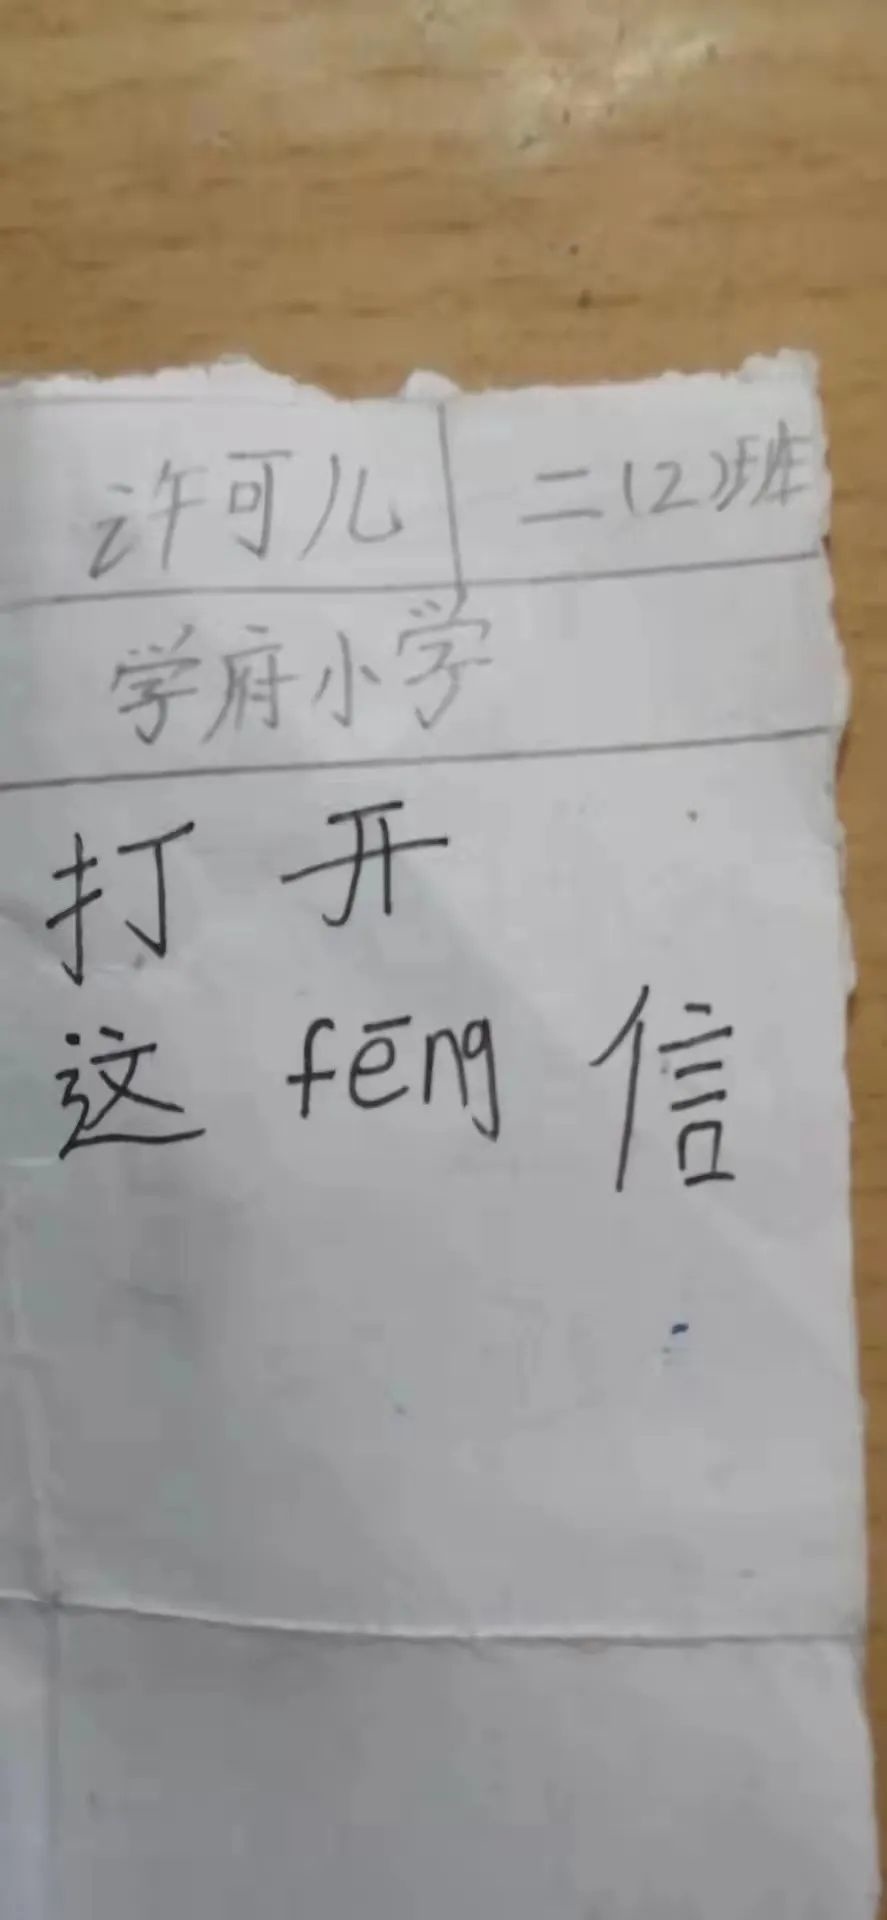 许可儿 二(2)班
学府小学
打开
这 fēng 信